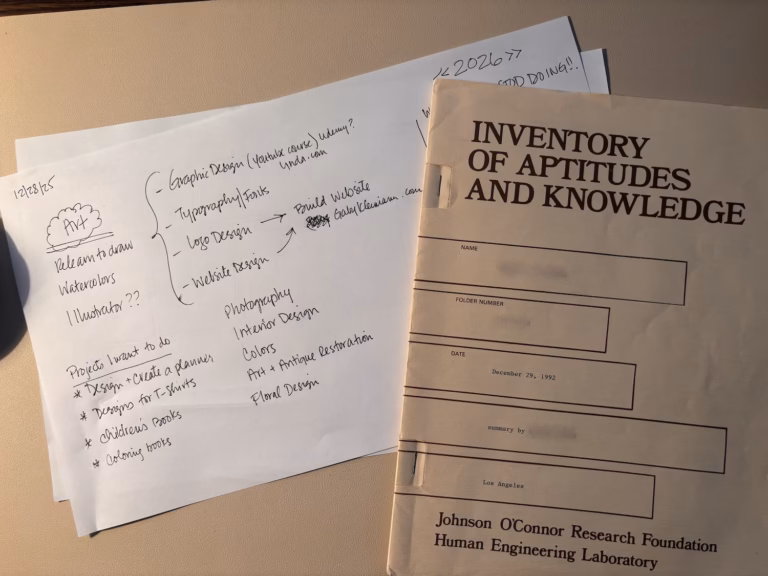 <<2026>>
DOING!!.
12/28/25
Art
Relearn to draw
Watercolors
Illustrator??
- Graphic Design (Youtube course) Udemy?
Lynda.com
- Typography/Fonts
- Logo Design → Build Website
- Website Design
Photography
Interior Design
Colors
Art + Antique Restoration
Floral Design
Projects I want to do
* Design + Create a planner
* Designs for T-shirts
* Children's Books
* Coloring books
INVENTORY
OF APTITUDES
AND KNOWLEDGE
NAME
FOLDER NUMBER
DATE
December 29, 1992
summary by
Los Angeles
Johnson O'Connor Research Foundation
Human Engineering Laboratory